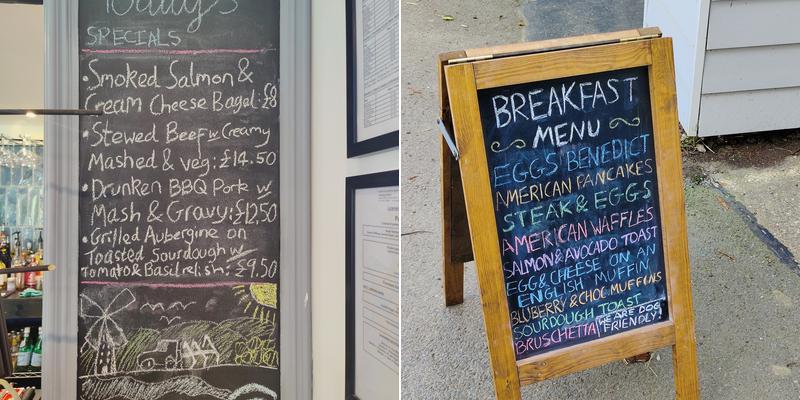 Today's
SPECIALS
• Smoked Salmon &
Cream Cheese Bagel: £8
• Stewed Beef w Creamy
Mashed & veg: £14.50
• Drunken BBQ Pork w
Mash & Gravy: £12.50
• Grilled Aubergine on
Toasted Sourdough w
Tomato & Basil relish: £9.50
BREAKFAST
MENU
EGGS BENEDICT
AMERICAN PANCAKES
STEAK & EGGS
AMERICAN WAFFLES
SALMON & AVOCADO TOAST
EGG & CHEESE ON AN
ENGLISH MUFFIN
BLUBERRY & CHOC MUFFINS
SOURDOUGH TOAST
BRUSCHETTA
WE ARE DOG
FRIENDLY!